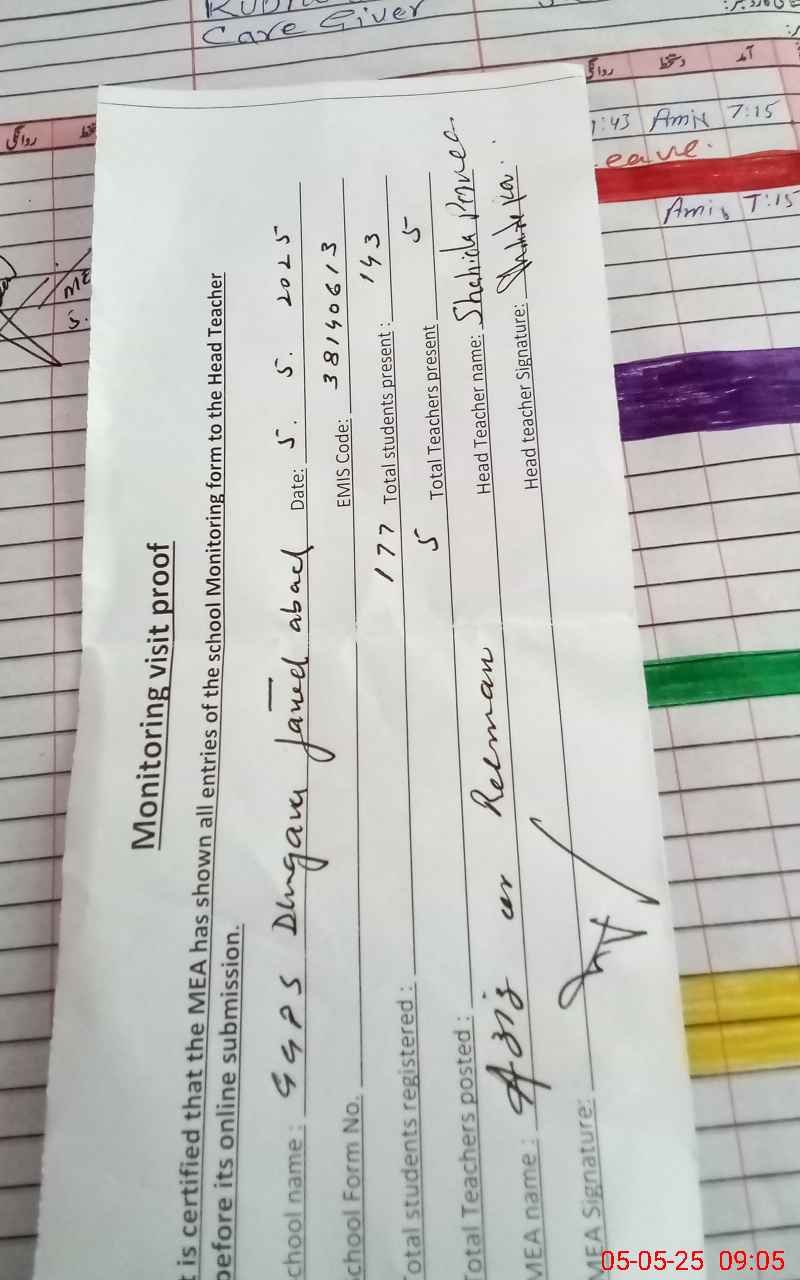 Care Giver
روانگی
دستخط
آمد
روانگی
1:43 Amin 7:15
eave.
Amin 7:15
Monitoring visit proof
t is certified that the MEA has shown all entries of the school Monitoring form to the Head Teacher
before its online submission.
chool name : GGPS Dhngana Javed abad Date: 5. 5. 2025
chool Form No. EMIS Code: 38140613
Total students registered : 177 Total students present : 143
Total Teachers posted : 5 Total Teachers present 5
MEA name : Aziz ur Rehman Head Teacher name: Shahida Parveen
MEA Signature: Head teacher Signature:
05-05-25 09:05